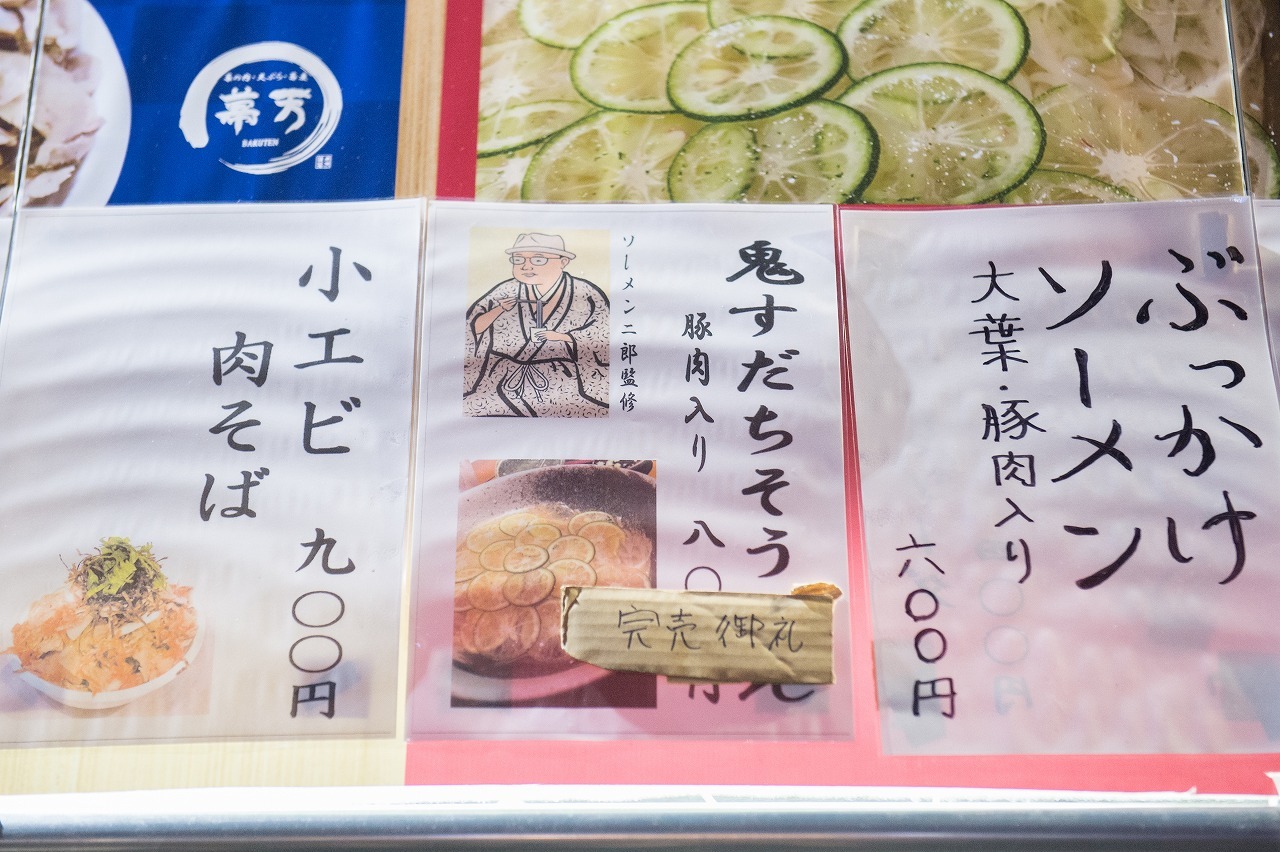 BAKUTEN
ぶっかけ
ソーメン
大葉・豚肉入り
六〇〇円
鬼すだちそう
豚肉入り 八〇
ソーメン二郎監修
完売御礼
小エビ
肉そば
九〇〇円